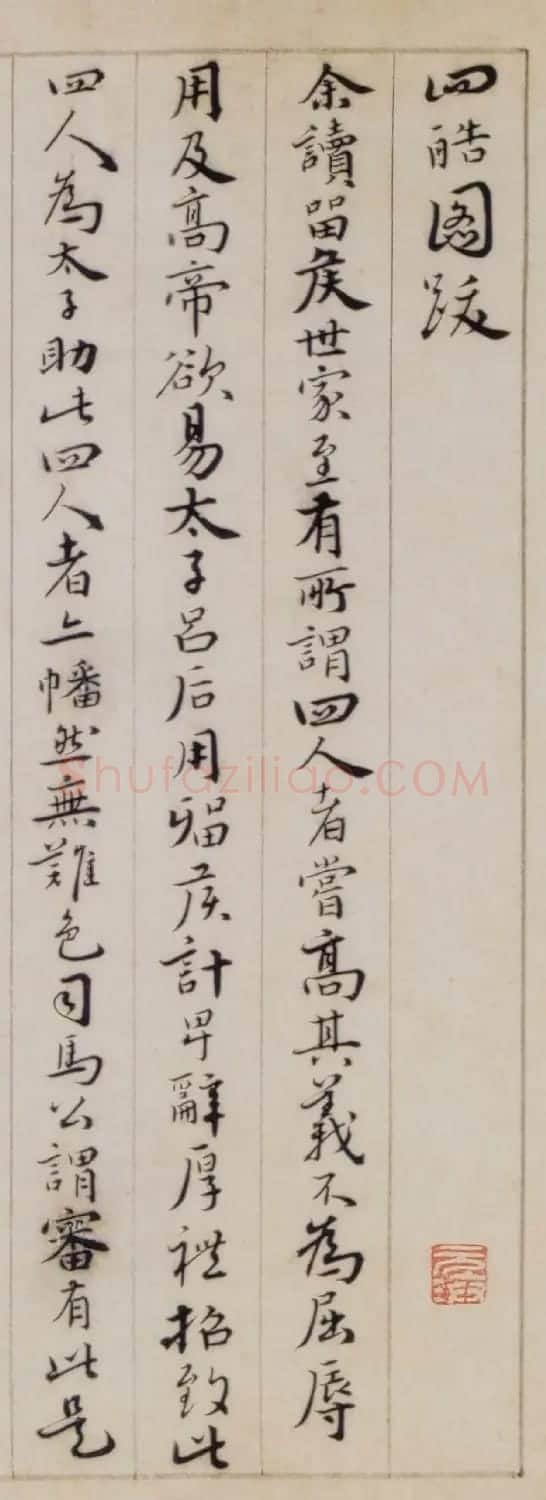 四皓圖跋
余讀留侯世家至有所謂四人者嘗高其義不為屈辱
用及高帝欲易太子呂后用留侯計卑辭厚禮招致此
四人為太子助此四人者亦幡然無難色司馬公謂審有此是
Shufaziliao.COM